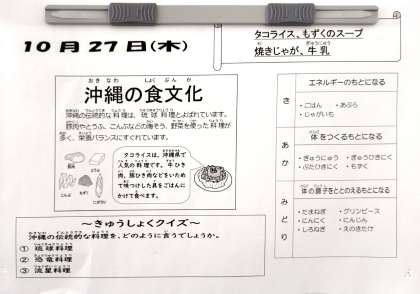 10月27日(木)
タコライス、もずくのスープ
焼きじゃが、牛乳
沖縄の食文化
沖縄の伝統的な料理は、琉球料理とよばれています。
豚肉やとうふ、こんぶなどの海そう、野菜を使った料理が
多く、栄養バランスにすぐれています。
タコライスは、沖縄県で
人気の料理です。牛ひき
肉、豚ひき肉などをいため
て味つけした具をごはんに
かけて食べます。
エネルギーのもとになる
き
・ごはん ・あぶら
・じゃがいも
体をつくるもとになる
あか
・ぎゅうにゅう ・ぎゅうひきにく
・ぶたひきにく ・もずく
体の調子をととのえるもとになる
みどり
・たまねぎ ・グリンピース
・にんにく ・にんじん
・しろねぎ ・えのきたけ
～きゅうしょくクイズ～
沖縄の伝統的な料理を、どのように言うでしょうか。
① 琉球料理
② 恐竜料理
③ 流星料理